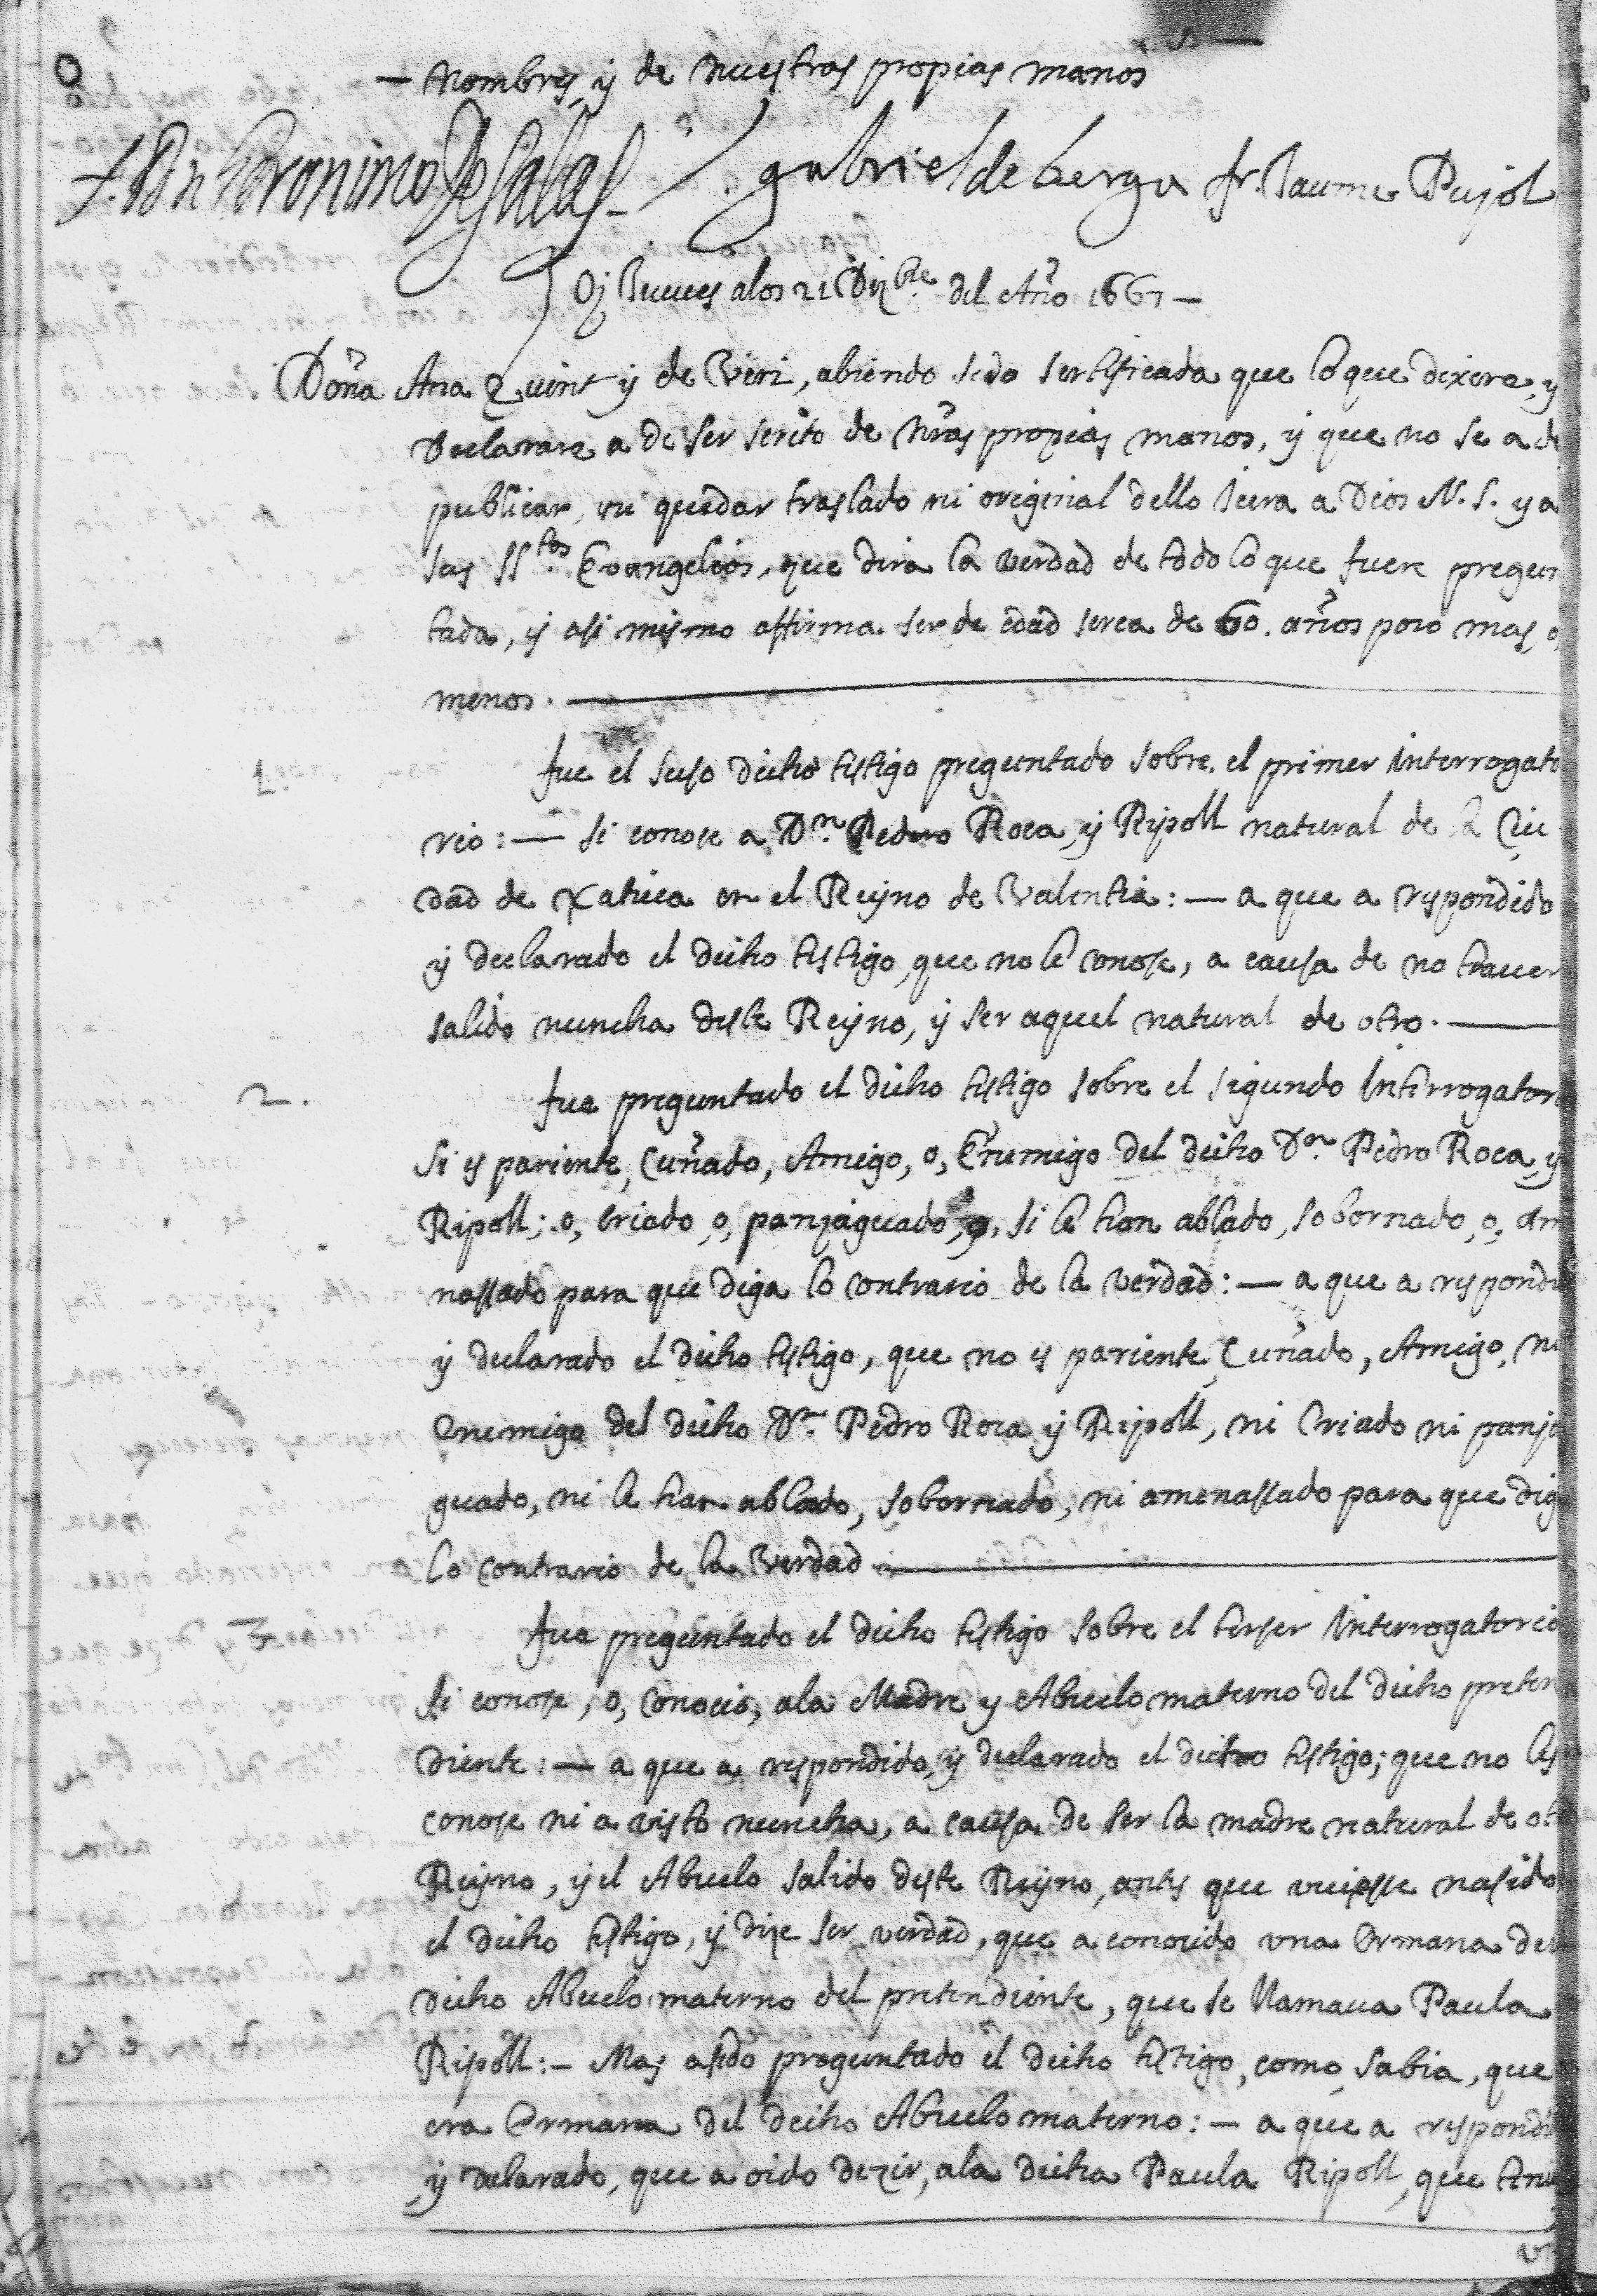 — Nombres, y de nuestras propias manos
f. Dn Geronimo de Salas gabriel de berga fr. Jaume Pujol
Oy Jueues a los 21 Dizbre. del Año 1661 —
Doña Ana Quint y de Veri, abiendo sido sertificada que lo que dixere, y
declarare a de ser scrito de nras propias manos, y que no se a de
publicar, ni quedar traslado ni original dello Jura a Dios N. S. y a
sus SStos Evangelios, que dira la verdad de todo lo que fuere pregun
tada, y asi mismo affirma ser de edad serca de 60. años poco mas, o,
menos. —
1. fue el suso dicho testigo preguntado sobre el primer interrogato
rio: — si conose a Dn. Pedro Roca, y Ripoll natural de la Ciu
dad de Xatiua en el Reyno de Valentia: — a que a respondido
y declarado el dicho testigo, que no le conose, a causa de no hauer
salido nuncha deste Reyno, y ser aquel natural de otro. —
2. fue preguntado el dicho testigo sobre el segundo Interrogator
si es pariente, Cuñado, Amigo, o, Enemigo del dicho Dn. Pedro Roca, y
Ripoll; o, criado, o, panjaguado, o, si le han ablado, sobornado, o, am
nassado para que diga lo contrario de la verdad: — a que a respondi
y declarado el dicho testigo, que no es pariente, Cuñado, Amigo, ni
enemigo del dicho Dn. Pedro Roca y Ripoll, ni Criado ni panja
guado, ni le han ablado, sobornado, ni amenassado para que dig
lo contrario de la verdad —
fue preguntado el dicho testigo sobre el terser interrogatorio
si conose, o, conocio, a la Madre y Abuelo materno del dicho preten
diente: — a que a respondido, y declarado el dicho testigo; que no les
conose ni a visto nuncha, a causa de ser la madre natural de ot
Reyno, y el Abuelo salido deste Reyno, antes que vuiesse nasido
el dicho testigo, y dize ser verdad, que a conocido vna Ermana del
dicho Abuelo materno del pretendiente, que se llamaua Paula
Ripoll: — Mas a sido preguntado el dicho testigo, como sabia, que
era Ermana del dicho Abuelo materno: — a que a respondi
y declarado, que a oido dezir, a la dicha Paula Ripoll, que